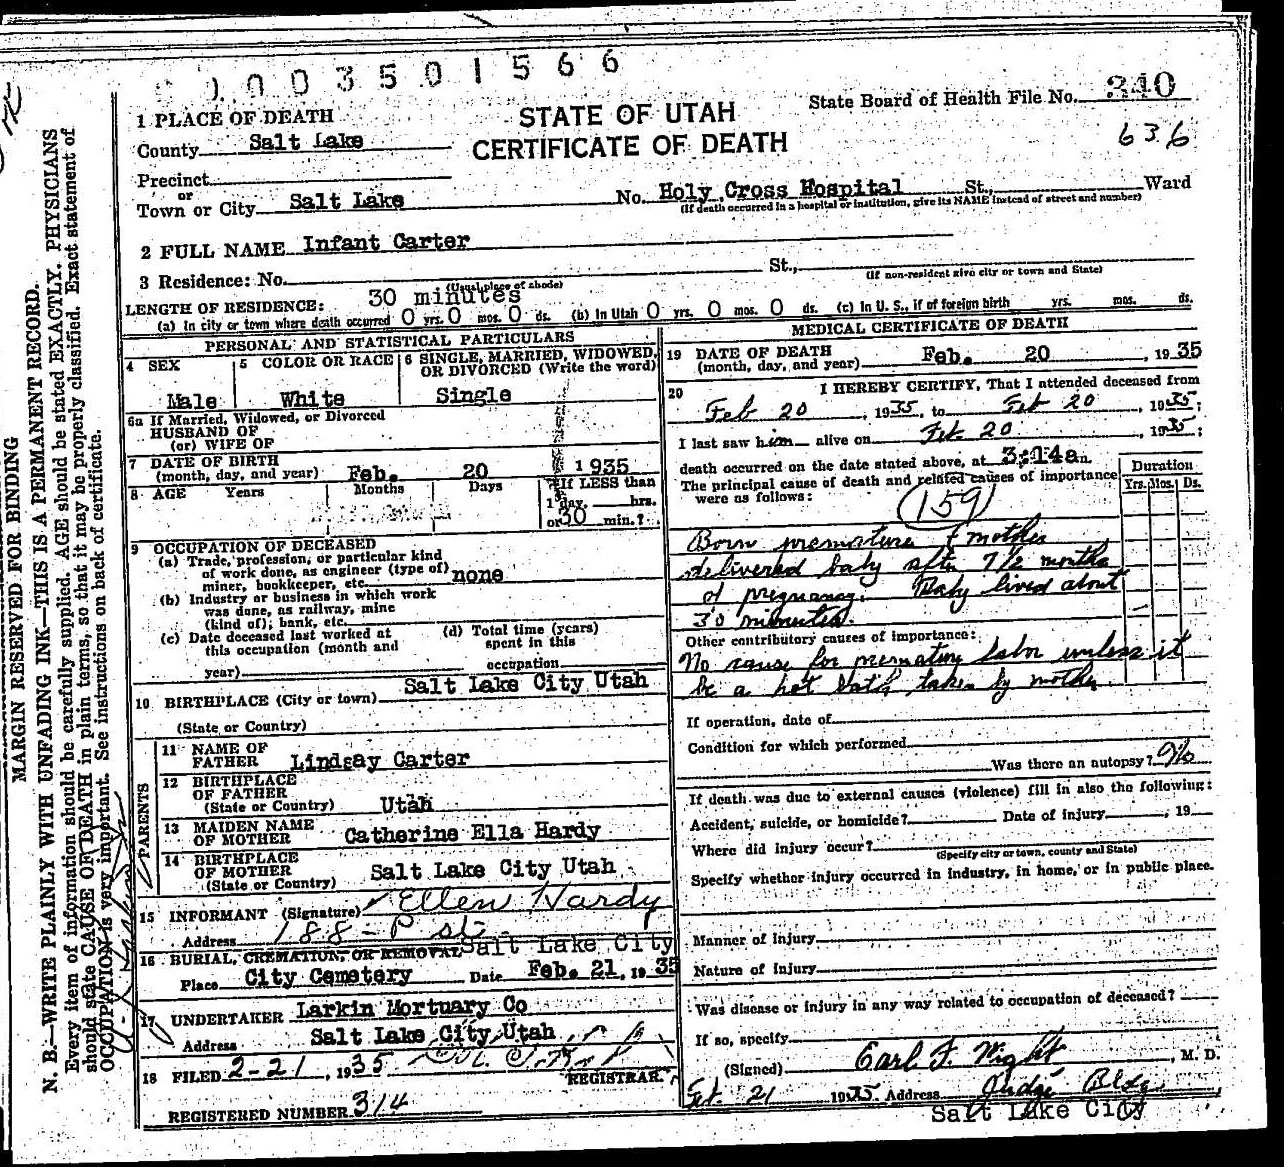 0003501566
State Board of Health File No. 340
636
STATE OF UTAH
CERTIFICATE OF DEATH
1 PLACE OF DEATH
County Salt Lake
Precinct
or
Town or City Salt Lake No. Holy Cross Hospital St., Ward
(If death occurred in a hospital or institution, give its NAME instead of street and number)
2 FULL NAME Infant Carter
3 Residence: No. St.,
(Usual place of abode) (If non-resident give city or town and State)
LENGTH OF RESIDENCE: 30 minutes
(a) In city or town where death occurred 0 yrs. 0 mos. 0 ds. (b) In Utah 0 yrs. 0 mos. 0 ds. (c) In U. S., if of foreign birth yrs. mos. ds.
PERSONAL AND STATISTICAL PARTICULARS
4 SEX
Male
5 COLOR OR RACE
White
6 SINGLE, MARRIED, WIDOWED,
OR DIVORCED (Write the word)
Single
6a If Married, Widowed, or Divorced
HUSBAND OF
(or) WIFE OF
7 DATE OF BIRTH
(month, day, and year) Feb. 20 1935
8 AGE Years Months Days If LESS than
1 day, hrs.
or 30 min.?
9 OCCUPATION OF DECEASED
(a) Trade, profession, or particular kind
of work done, as engineer (type of)
miner, bookkeeper, etc. none
(b) Industry or business in which work
was done, as railway, mine
(kind of); bank, etc.
(c) Date deceased last worked at
this occupation (month and
year)
(d) Total time (years)
spent in this
occupation
10 BIRTHPLACE (City or town) Salt Lake City Utah
(State or Country)
PARENTS
11 NAME OF
FATHER Lindsay Carter
12 BIRTHPLACE
OF FATHER
(State or Country) Utah
13 MAIDEN NAME
OF MOTHER Catherine Ella Hardy
14 BIRTHPLACE
OF MOTHER
(State or Country) Salt Lake City Utah
15 INFORMANT (Signature) Ellen Hardy
Address 188 - P St. Salt Lake City
16 BURIAL, CREMATION, OR REMOVAL
Place City Cemetery Date Feb. 21, 1935
17 UNDERTAKER Larkin Mortuary Co
Address Salt Lake City, Utah
18 FILED 2-21, 1935
REGISTRAR.
REGISTERED NUMBER 314
MEDICAL CERTIFICATE OF DEATH
19 DATE OF DEATH
(month, day, and year) Feb. 20, 1935
20 I HEREBY CERTIFY, That I attended deceased from
Feb 20, 1935, to Feb 20, 1935;
I last saw him alive on Feb. 20, 1935;
death occurred on the date stated above, at 3:14a m.
The principal cause of death and related causes of importance
were as follows:
Duration
Yrs. Mos. Ds.
159
Born premature & mother
delivered baby after 7 1/2 months
of pregnancy. Baby lived about
30 minutes.
Other contributory causes of importance:
No cause for premature labor unless it
be a hot bath taken by mother.
If operation, date of
Condition for which performed
Was there an autopsy? No
If death was due to external causes (violence) fill in also the following:
Accident, suicide, or homicide? Date of injury, 19
Where did injury occur?
(Specify city or town, county and State)
Specify whether injury occurred in industry, in home, or in public place.
Manner of injury
Nature of injury
Was disease or injury in any way related to occupation of deceased?
If so, specify
(Signed) Earl F. Wight, M. D.
Feb. 21 1935 Address Judge Bldg
Salt Lake City
MARGIN RESERVED FOR BINDING
N. B.—WRITE PLAINLY WITH UNFADING INK—THIS IS A PERMANENT RECORD.
Every item of information should be carefully supplied. AGE should be stated EXACTLY. PHYSICIANS
should state CAUSE OF DEATH in plain terms, so that it may be properly classified. Exact statement of
OCCUPATION is very important. See instructions on back of certificate.